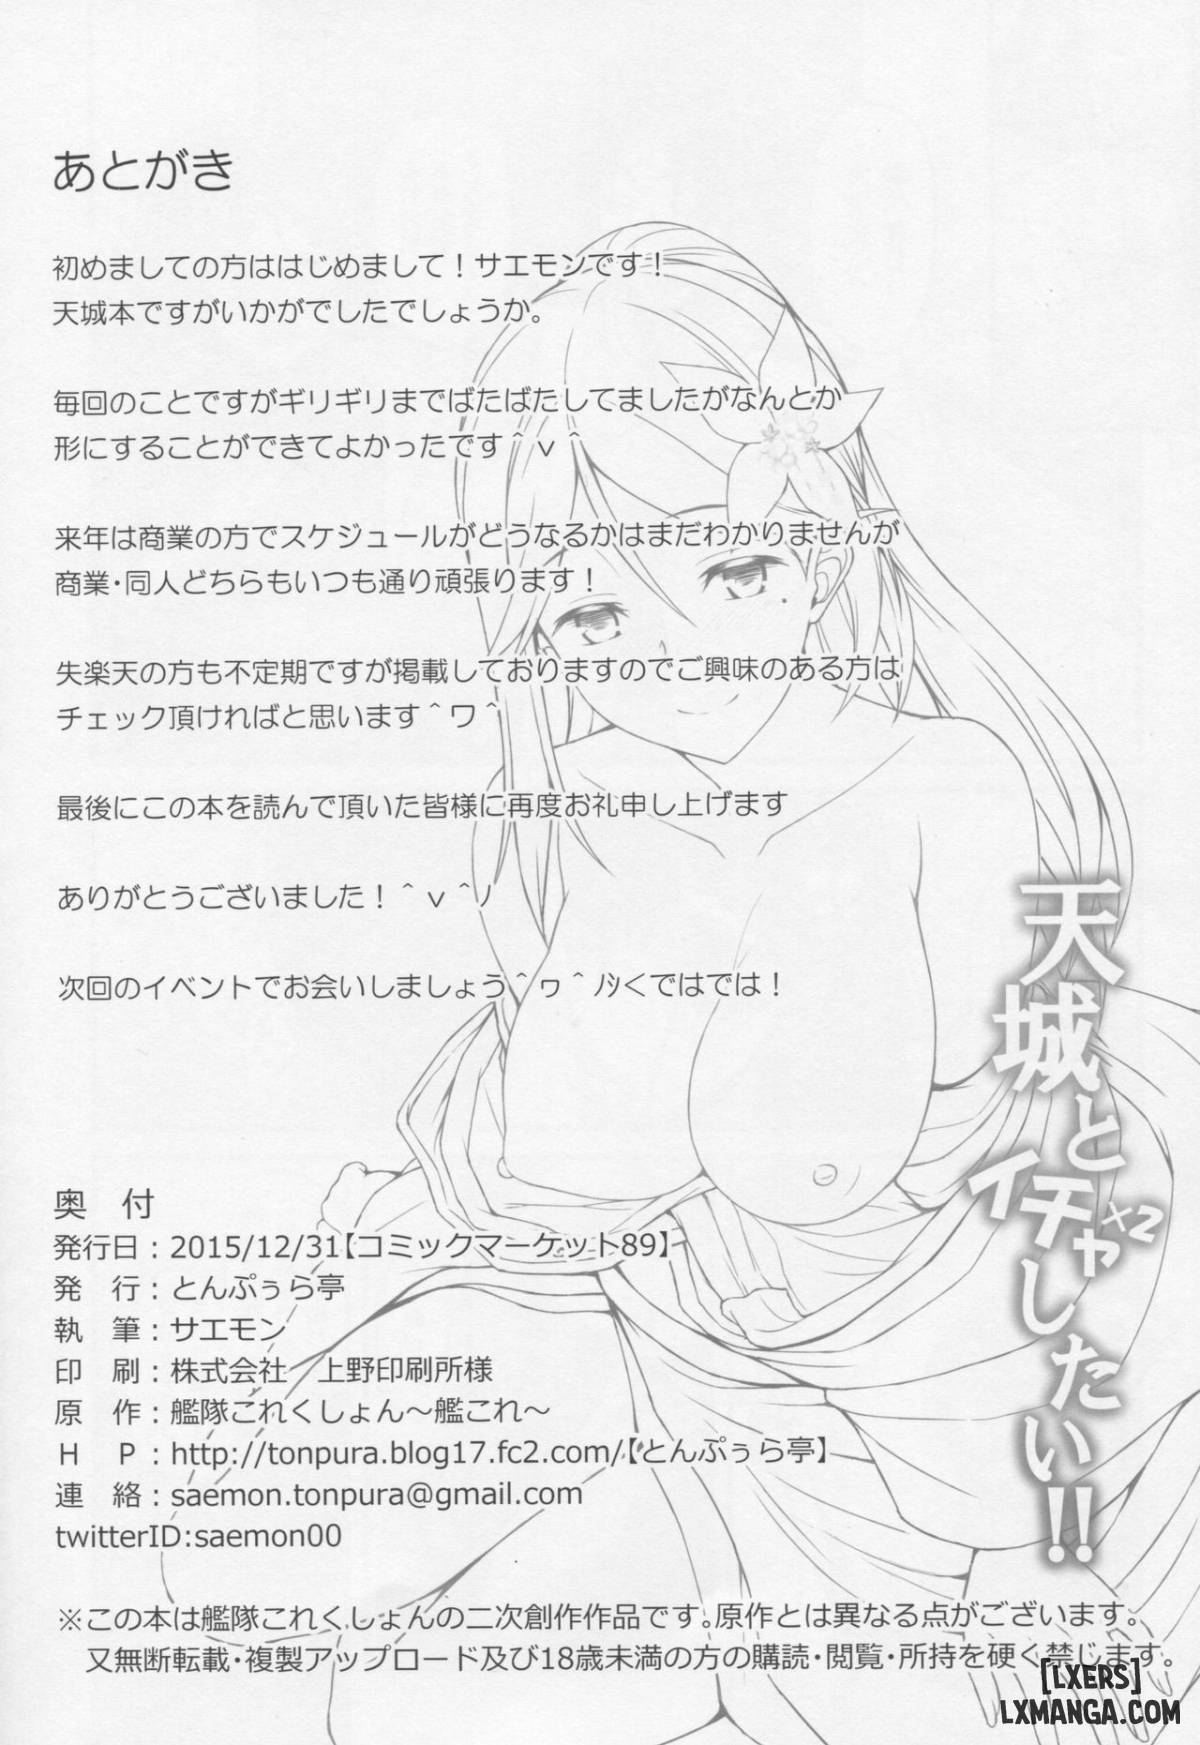 あとがき
初めましての方ははじめまして！サエモンです！
天城本ですがいかがでしたでしょうか。
毎回のことですがギリギリまでばたばたしてましたがなんとか
形にすることができてよかったです＾ｖ＾
来年は商業の方でスケジュールがどうなるかはまだわかりませんが
商業・同人どちらもいつも通り頑張ります！
失楽天の方も不定期ですが掲載しておりますのでご興味のある方は
チェック頂ければと思います＾ワ＾
最後にこの本を読んで頂いた皆様に再度お礼申し上げます
ありがとうございました！＾ｖ＾ﾉ
次回のイベントでお会いしましょう＾ヮ＾ﾉｼくではでは！
天城とイチャ×2したい!!
奥　付
発行日：2015/12/31【コミックマーケット89】
発　行：とんぷぅら亭
執　筆：サエモン
印　刷：株式会社　上野印刷所様
原　作：艦隊これくしょん～艦これ～
Ｈ　Ｐ：http://tonpura.blog17.fc2.com/【とんぷぅら亭】
連　絡：saemon.tonpura@gmail.com
twitterID:saemon00
※この本は艦隊これくしょんの二次創作作品です。原作とは異なる点がございます。
又無断転載・複製アップロード及び18歳未満の方の購読・閲覧・所持を硬く禁じます。
[LXERS]
LXMANGA.COM